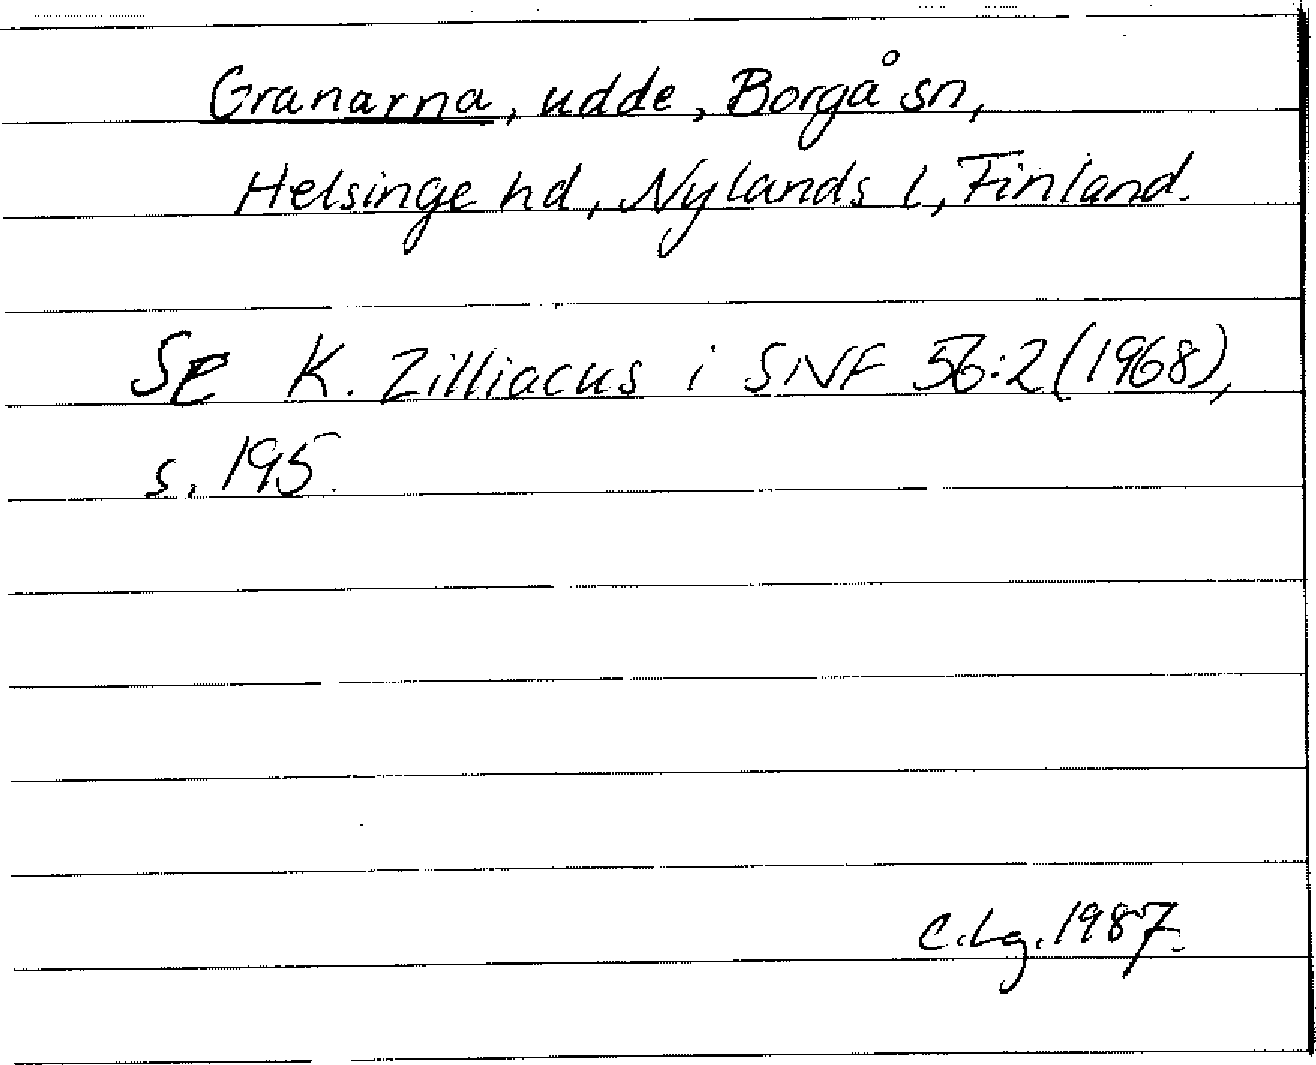 Granarna, udde, Borgå sn,
Helsinge hd, Nylands l, Finland.
Se K. Zilliacus i SNF 56:2 (1968),
s. 195.
C.Lg. 1987.